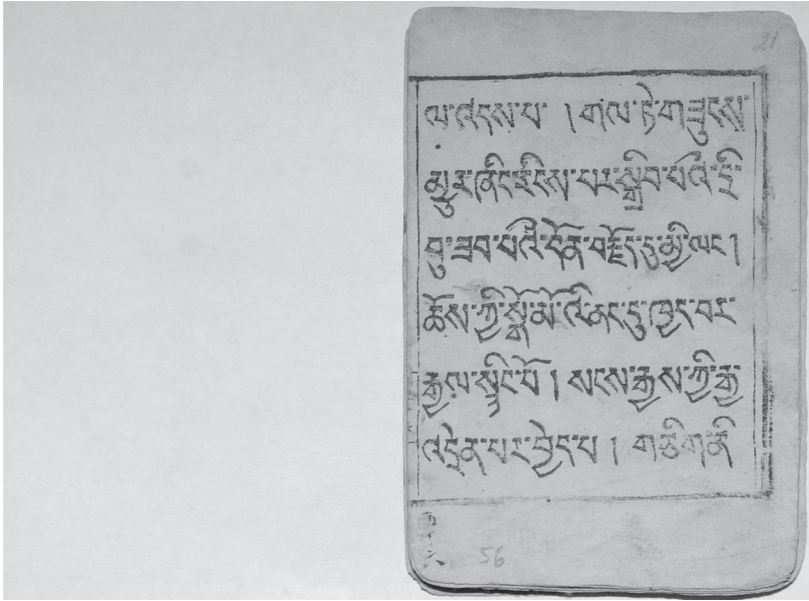 21
ལ་འདས་པ་ །གལ་ཏེ་གཟུངས་
མྱུར་ཞིང་རིངས་པར་སྒྲིབ་པའི་དྲི་
བུ་ཟབ་པའི་དོན་བརྗོད་དུ་མྱི་ལང།
ཆོས་ཀྱི་སྒོ་མོ་འི་ནང་དུ་ཁྱད་བར་
རྒྱལ་སྙིང་པོ། སངས་རྒྱས་ཀྱི་རྒྱ་
འདྲེན་པར་བྱེད་པ། གཅིག་ནི
56